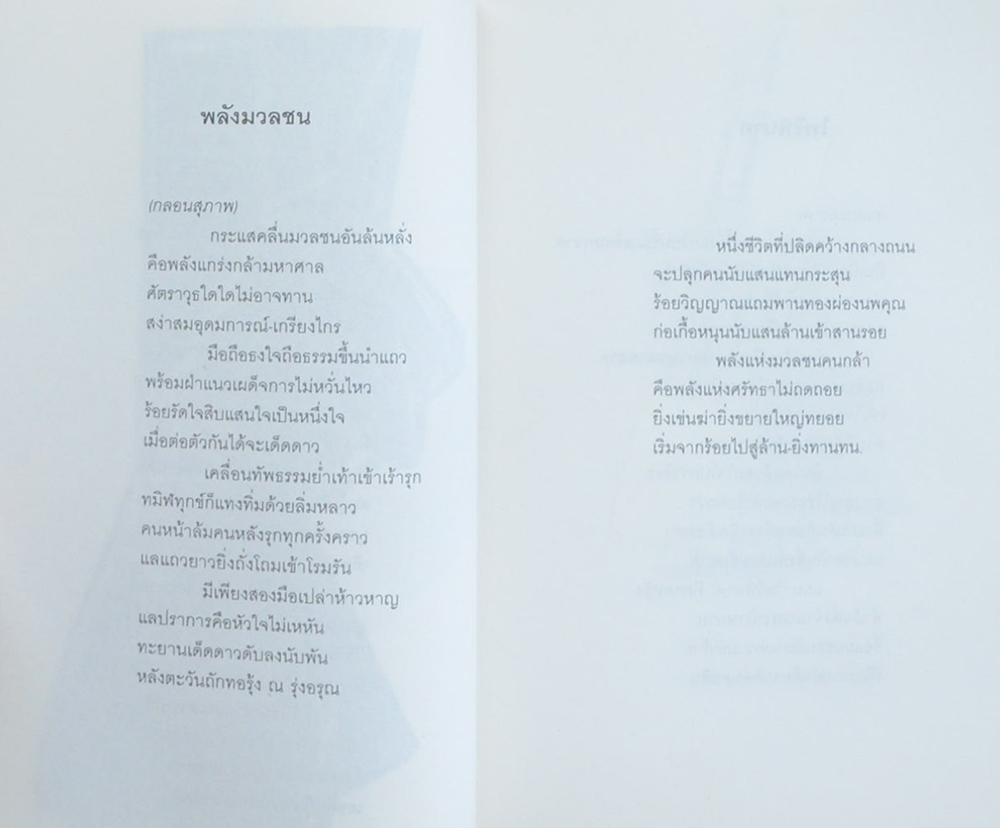 พลังมวลชน
(กลอนสุภาพ)
กระแสคลื่นมวลชนอันล้นหลั่ง
คือพลังแกร่งกล้ามหาศาล
ศัตราวุธใดใดไม่อาจทาน
สง่าสมอุดมการณ์-เกรียงไกร
มือถือธงใจถือธรรมขึ้นนำแถว
พร้อมฝ่าแนวเผด็จการไม่หวั่นไหว
ร้อยรัดใจสิบแสนใจเป็นหนึ่งใจ
เมื่อต่อตัวกันได้จะเด็ดดาว
เคลื่อนทัพธรรมย่ำเท้าเข้าเร้ารุก
ทมิฬทุกข์ก็แทงทิ่มด้วยลิ่มหลาว
คนหน้าล้มคนหลังรุกทุกครั้งคราว
แลแถวยาวยิ่งถั่งโถมเข้าโรมรัน
มีเพียงสองมือเปล่าห้าวหาญ
แลปราการคือหัวใจไม่เหหัน
ทะยานเด็ดดาวดับลงนับพัน
หลังตะวันถักทอรุ้ง ณ รุ่งอรุณ
หนึ่งชีวิตที่ปลิดคว้างกลางถนน
จะปลุกคนนับแสนแทนกระสุน
ร้อยวิญญาณแถมพานทองผ่องนพคุณ
ก่อเกื้อหนุนนับแสนล้านเข้าสานรอย
พลังแห่งมวลชนคนกล้า
คือพลังแห่งศรัทธาไม่ถดถอย
ยิ่งเข่นฆ่ายิ่งขยายใหญ่ทยอย
เริ่มจากร้อยไปสู่ล้าน-ยิ่งทานทน.